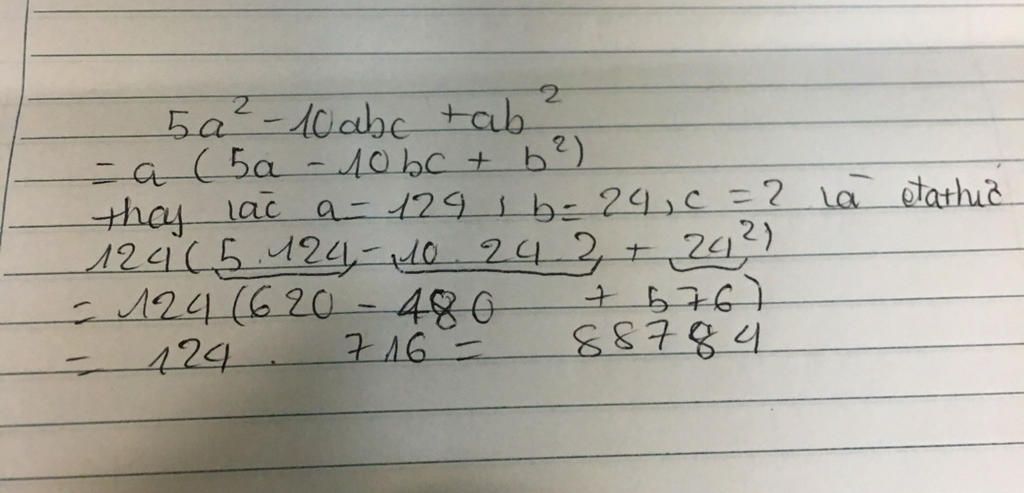 5a² - 10abc + ab²
= a (5a - 10bc + b²)
thay a = 124, b = 24, c = 2
124 (5.124 - 10.24.2 + 24²)
= 124 (620 - 480 + 576)
= 124 . 716 = 88784